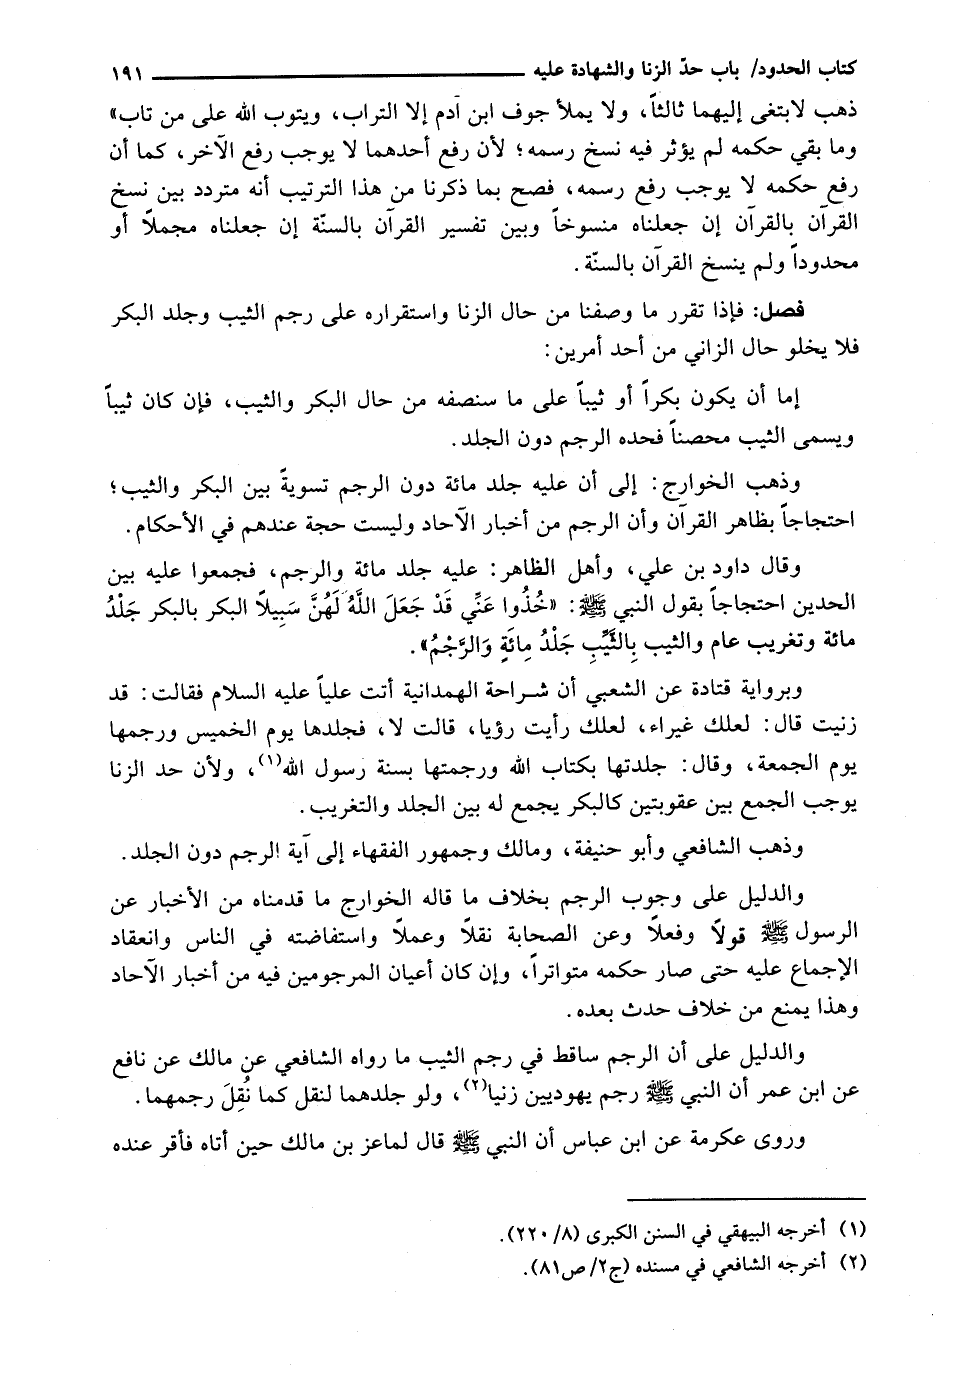 كتاب الحدود/ باب حدّ الزنا والشهادة عليه ١٩١
ذهب لابتغى إليهما ثالثاً، ولا يملأ جوف ابن آدم إلا التراب، ويتوب الله على من تاب»
وما بقي حكمه لم يؤثر فيه نسخ رسمه؛ لأن رفع أحدهما لا يوجب رفع الآخر، كما أن
رفع حكمه لا يوجب رفع رسمه، فصح بما ذكرنا من هذا الترتيب أنه متردد بين نسخ
القرآن بالقرآن إن جعلناه منسوخاً وبين تفسير القرآن بالسنّة إن جعلناه مجملاً أو
محدوداً ولم ينسخ القرآن بالسنّة.
فصل: فإذا تقرر ما وصفنا من حال الزنا واستقراره على رجم الثيب وجلد البكر
فلا يخلو حال الزاني من أحد أمرين:
إما أن يكون بكراً أو ثيباً على ما سنصفه من حال البكر والثيب، فإن كان ثيباً
ويسمى الثيب محصناً فحده الرجم دون الجلد.
وذهب الخوارج: إلى أن عليه جلد مائة دون الرجم تسويةً بين البكر والثيب؛
احتجاجاً بظاهر القرآن وأن الرجم من أخبار الآحاد وليست حجة عندهم في الأحكام.
وقال داود بن علي، وأهل الظاهر: عليه جلد مائة والرجم، فجمعوا عليه بين
الحدين احتجاجاً بقول النبي ﷺ: «خُذُوا عَنِّي قَدْ جَعَلَ اللَّهُ لَهُنَّ سَبِيلاً البكر بالبكر جَلْدُ
مائة وتغريب عام والثيب بِالثَّيِّبِ جَلْدُ مِائَةٍ وَالرَّجْمُ».
وبرواية قتادة عن الشعبي أن شراحة الهمدانية أتت علياً عليه السلام فقالت: قد
زنيت قال: لعلك غيراء، لعلك رأيت رؤيا، قالت لا، فجلدها يوم الخميس ورجمها
يوم الجمعة، وقال: جلدتها بكتاب الله ورجمتها بسنة رسول الله(١)، ولأن حد الزنا
يوجب الجمع بين عقوبتين كالبكر يجمع له بين الجلد والتغريب.
وذهب الشافعي وأبو حنيفة، ومالك وجمهور الفقهاء إلى آية الرجم دون الجلد.
والدليل على وجوب الرجم بخلاف ما قاله الخوارج ما قدمناه من الأخبار عن
الرسول ﷺ قولاً وفعلاً وعن الصحابة نقلاً وعملاً واستفاضته في الناس وانعقاد
الإجماع عليه حتى صار حكمه متواتراً، وإن كان أعيان المرجومين فيه من أخبار الآحاد
وهذا يمنع من خلاف حدث بعده.
والدليل على أن الرجم ساقط في رجم الثيب ما رواه الشافعي عن مالك عن نافع
عن ابن عمر أن النبي ﷺ رجم يهوديين زنيا(٢)، ولو جلدهما لنقل كما نُقِلَ رجمهما.
وروى عكرمة عن ابن عباس أن النبي ﷺ قال لماعز بن مالك حين أتاه فأقر عنده
(١) أخرجه البيهقي في السنن الكبرى (٨/ ٢٢٠).
(٢) أخرجه الشافعي في مسنده (ج٢/ ص٨١).